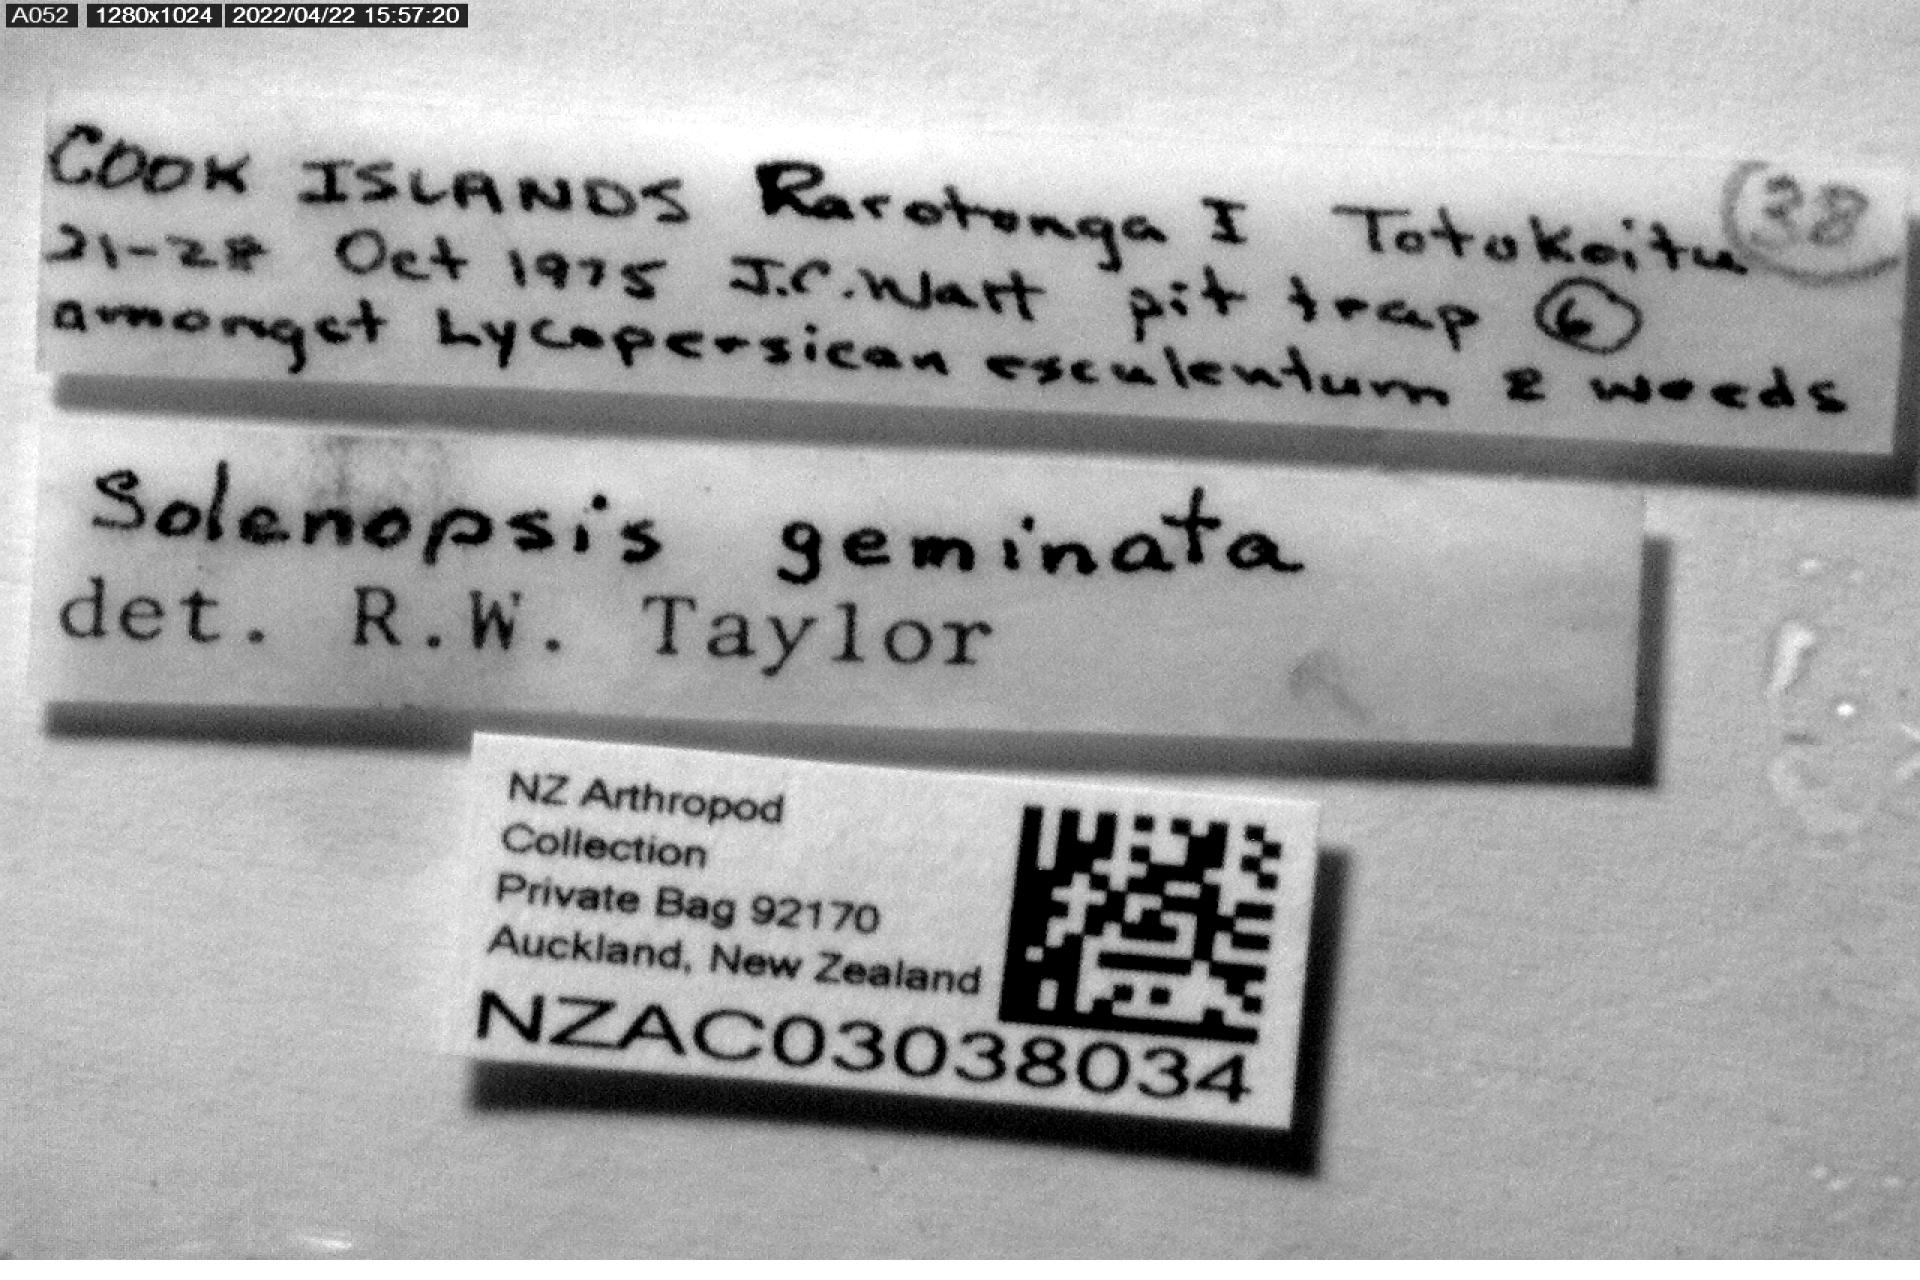 A052 1280x1024 2022/04/22 15:57:20
COOK ISLANDS Rarotonga I Totokoitu 38
21-28 Oct 1975 J.C.Watt pit trap 6
amongst Lycopersican esculentum & weeds
Solenopsis geminata
det. R.W. Taylor
NZ Arthropod
Collection
Private Bag 92170
Auckland, New Zealand
NZAC03038034